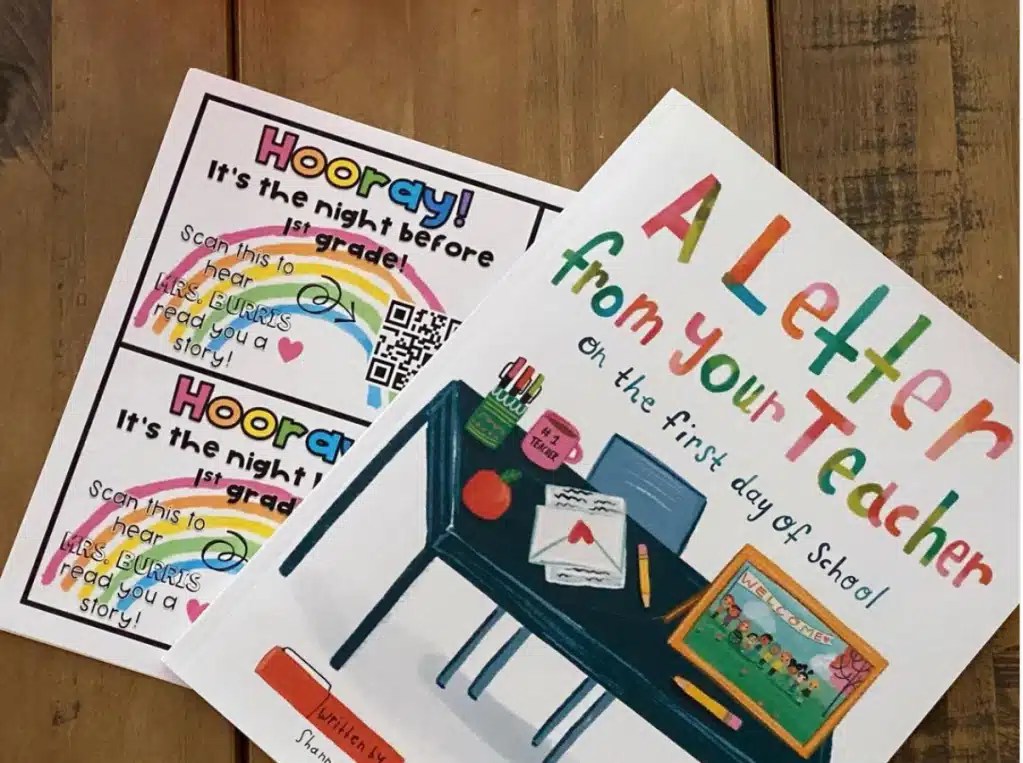 Hooray!
It's the night before
1st grade!
Scan this to
hear
MRS. BURRIS
read you a
story!
Hooray
It's the night
1st grad
Scan this to
hear
MRS. BURRIS
read you a
story!
A Letter
from your Teacher
on the first day of School
#1
TEACHER
WELCOME
written by
Shann